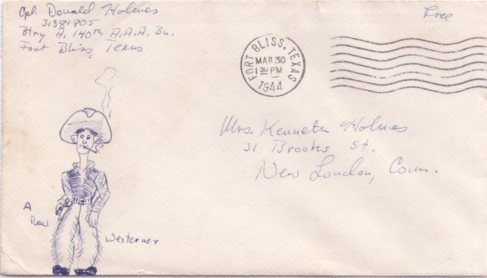 Cpl. Donald Holmes
31381805
Btry A. 140th A.A.A. Bn.
Fort Bliss, Texas
Free
FORT BLISS, TEXAS
MAR 30
1 30 PM
1944
Mrs. Kenneth Holmes
31 Brooks St.
New London, Conn.
A
Real
Westerner